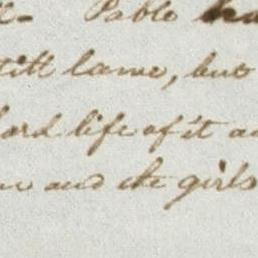 Pablo
still lame, but
hard life of it
and the girls